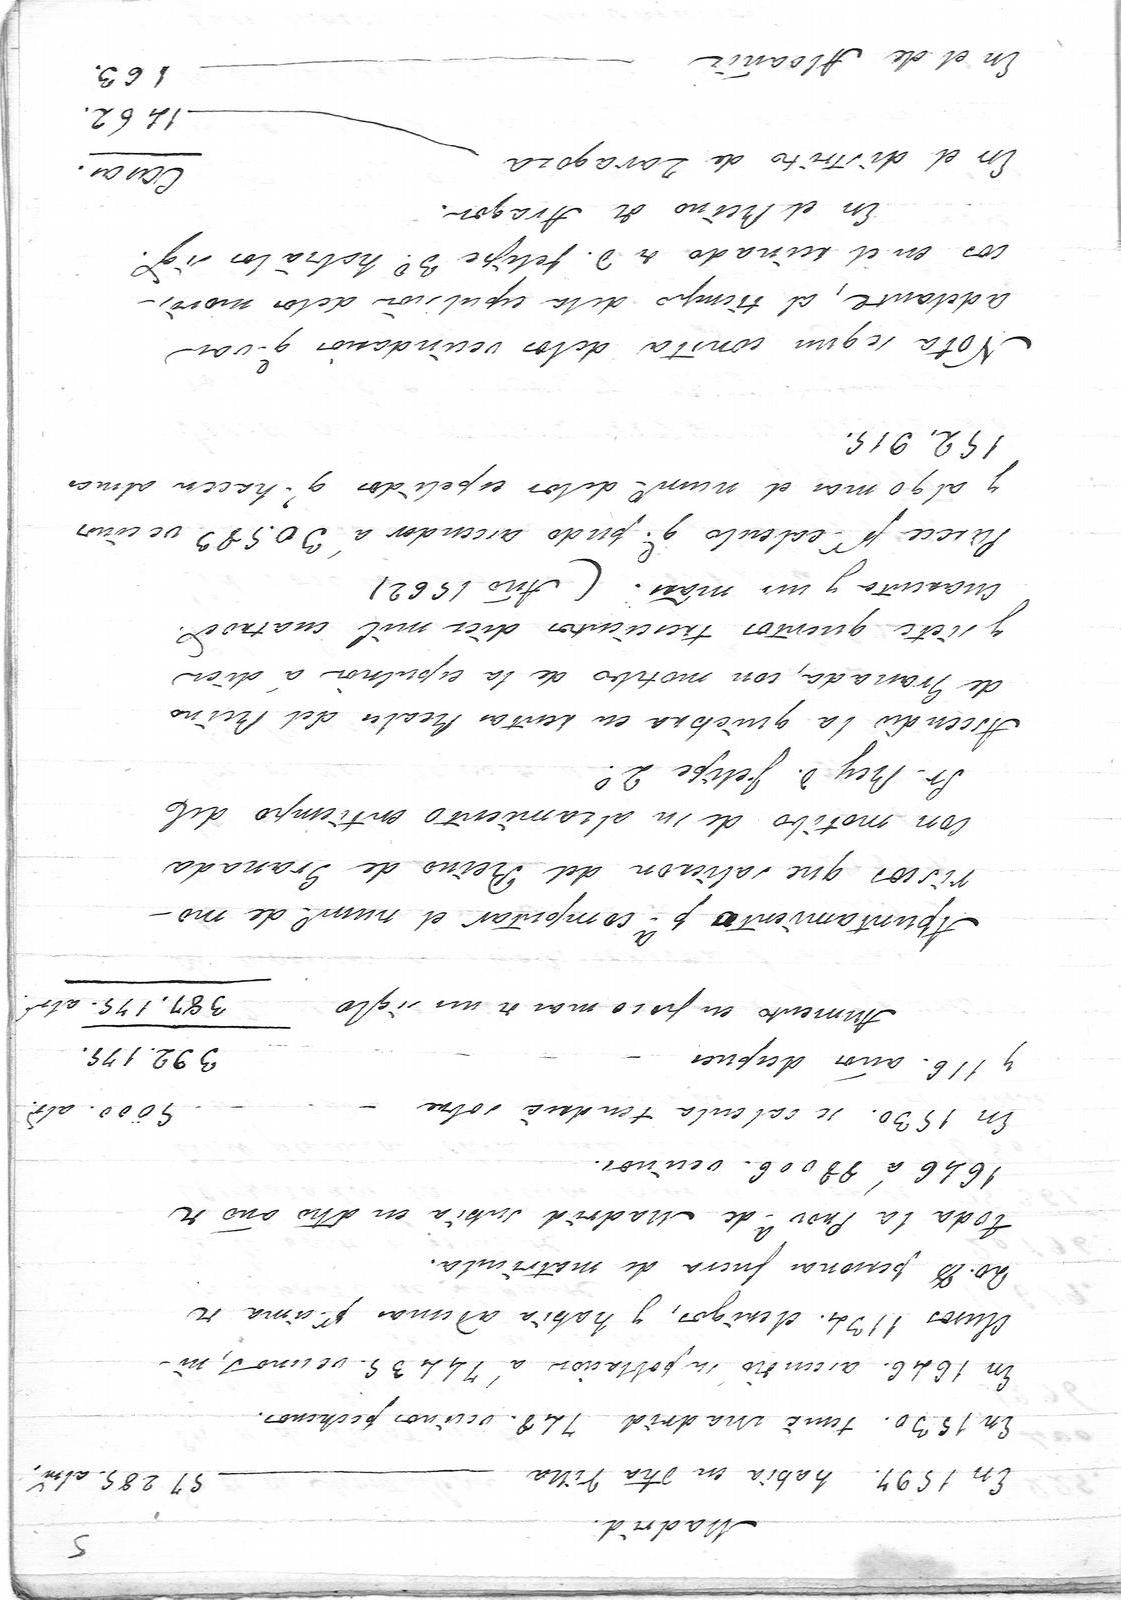 5
Madrid.
En 1597. habia en dha Villa ——— 57285. alms.
En 1530. tenia Madrid 748. vecinos pecheros.
En 1646. ascendió su poblacion á 74435. vecinos, in-
clusos 1134. clerigos, y habia ademas pr. cima de
20.000 personas fuera de matricula.
toda la Prova. de Madrid subia en dho año de
1646 á vecinos.
En 1530. se calcula tendria sobre - - - 5000. als.
y 116. años despues - - - 392.175.
Aumento en poco mas de un siglo 387.175. als.
Apuntamiento pa. computar el numo. de mo-
riscos que salieron del Reino de Granada
con motibo de su alzamiento entiempo del
Sr. Rey D. Felipe 2º.
Ascendio la quiebra en rentas Reales del Reino
de Granada, con motibo de la espulsion á diez
y siete quentos trescientos diez mil cuatroc.
cuarenta y un mãrs. (Año 1562)
Parece pr. calculo qe. pudo ascender á 30.583 vecinos
y algo mas el numo. delos espelidos qe. hacen almas
152,915.
Nota segun consta delos vecindarios qe. van
adelante, al tiempo dela espulsion delos moris-
cos en el reinado de D. Felipe 3º. habia los sigtes.
En el Reino de Aragon.
Casas.
En el distrito de Zaragoza ——— 1462.
En el de Alcañiz ——— 163.